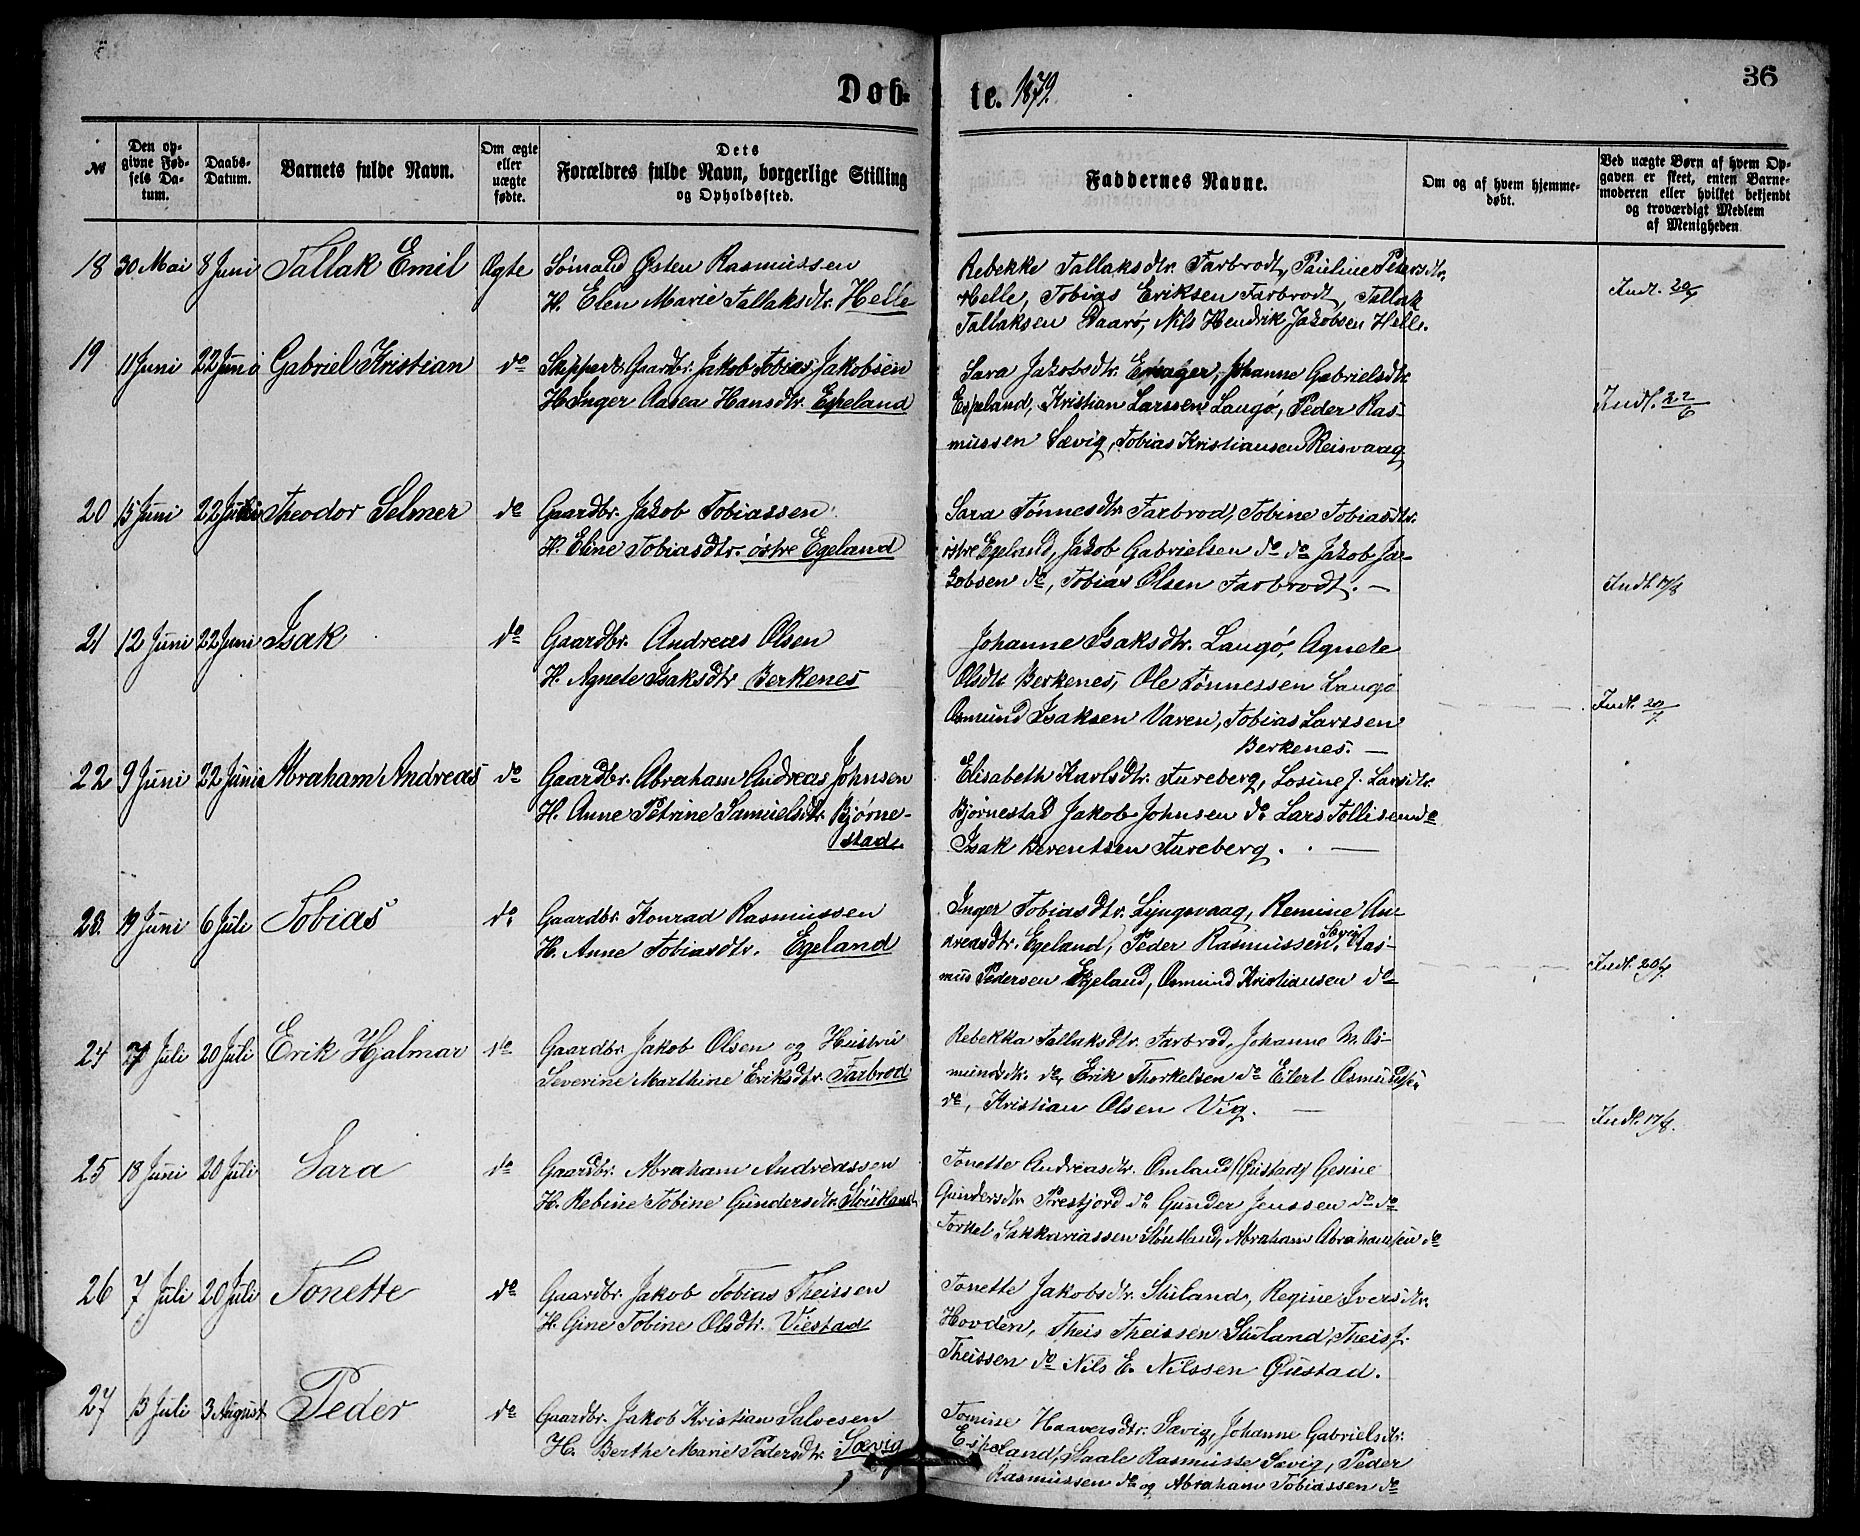 36
Døb-
te. 1879.
№
Den op-
givne Fød-
sels Da-
tum.
Daabs-
Datum.
Barnets fulde Navn.
Om ægte
eller
uægte
fødte.
Dets
Forældres fulde Navn, borgerlige Stilling
og Opholdssted.
Faddernes Navne.
Om og af hvem hjemme-
døbt.
Ved uægte Børn af hvem Op-
gaven er skeet, enten Barne-
moderen eller hvilket bekjendt
og troværdigt Medlem
af Menigheden
18 30 Mai 8 Juni Tallak Emil Ægte Sömand Østen Rasmussen
H. Elen Marie Tallaksdtr. Helle
Rebekke Tallaksdtr. Farbrodt, Pauline Pedersdtr.
Helle, Tobias Eriksen Farbrodt, Tallak
Tallaksen Daarø, Nils Hendrik Jakobsen Helle.
Indl.
19 11 Juni 22 Juni Gabriel Kristian do Skipper & Gaardbr. Jakob Tobias Jakobsen
H. Inger Aasea Hansdtr. Espeland
Sara Jakobsdtr. Johanne Gabrielsdtr
Espeland, Kristian Larssen Langø, Peder Ras-
mussen Sævig, Tobias Kristiansen Reisvaag
Indl. 22/6
20 15 Juni 22 Theodor Selmer do Gaardbr. Jakob Tobiassen
H. Eline Tobiasdtr. østre Egeland
Sara Tønnesdtr Farbrod, Tobine Tobiasdtr.
østre Egeland, Jakob Gabrielsen do do Jakob Ja-
kobsen do, Tobias Olsen Farbrodt. —
Indl. 17/8
21 12 Juni 22 Juni Isak do Gaardbr. Andreas Olsen
H. Agnete Isaksdtr Berkenes
Johanne Isaksdtr. Langø, Agnete
Olsdtr Berkenes, Ole Tønnessen Langø
Osmund Isaksen Varen, Tobias Larssen
Berkenes. —
Indl. 20/7
22 9 Juni 22 Juni Abraham Andreas do Gaardbr. Abraham Andreas Johnsen
H. Anne Petrine Samuelsdtr. Bjørne-
stad.
Elisabeth Karlsdtr. Fureberg, Losine J. Larsdtr.
Bjørnestad Jakob Johnsen do Lars Tollisen do
Isak Berentsen Fureberg. —
23. 19 Juni 6 Juli Tobias do Gaardbr. Konrad Rasmussen
H. Anne Tobiasdtr. Egeland
Inger Tobiasdtr. Lyngsvaag, Remine An-
dreasdtr. Egeland, Peder Rasmussen Sævig, Ras-
mus Pedersen Egeland, Osmund Kristiansen do
Indl. 20/7.
24 7 Juli 20 Juli Erik Hjalmar do Gaardbr. Jakob Olsen og Hustru
Severine Marthine Eriksdtr. Farbrod
Rebekka Tallaksdtr. Farbrod, Johanne M. Os-
mundsdtr. do, Erik Thorkelsen do Eilert Osmundsen
do, Kristian Olsen Vig. —
Indl. 17/8.
25 18 Juni 20 Juli Sara do Gaardbr. Abraham Andreassen
H. Rebine Tobine Gundersdtr. Støutland
Tonette Andreasdtr. Omland (Øustad) Gesine
Gundersdtr. Prestjord do Gunder Jenssen do do
Torkel Sakkariassen Støutland, Abraham Abrahamsen do
26 7 Juli 20 Juli Tonette do Gaardbr. Jakob Tobias Theissen
H. Gine Tobine Olsdtr. Viestad
Tonette Jakobsdtr. Stuland, Regine Iversdtr.
Hovden, Theis Theissen Stuland, Theis J.
Theissen do Nils E. Nilssen Øustad.
27 13 Juli 3 August Peder do Gaardbr. Jakob Kristian Salvesen
H. Berthe Marie Pedersdtr. Sævig
Tomine Haaversdtr. Sævig, Johanne Gabrielsdtr.
Espeland, Staale Rasmusse Sævig, Peder
Rasmussen do og Abraham Tobiassen do